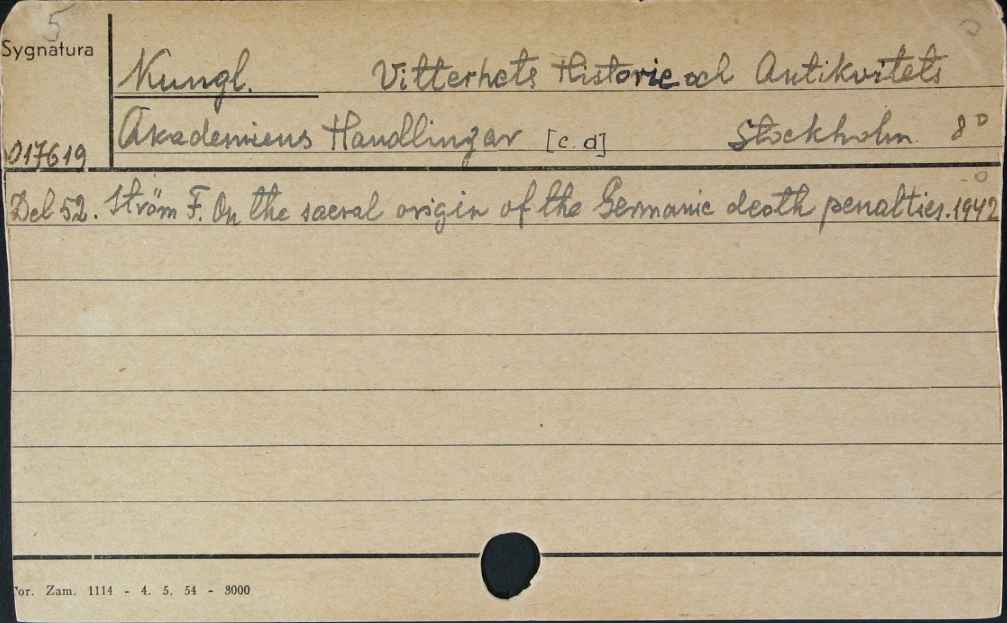 5
Sygnatura
Kungl. Vitterhets Historie och Antikvitets
Akademiens Handlingar [c. d] Stockholm 8°
017619
Del 52. Ström F. On the sacral origin of the Germanic death penalties. 1942
Tor. Zam. 1114 - 4. 5. 54 - 8000